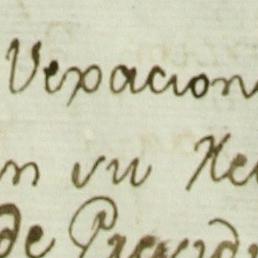 Vexacion
n su Rei
de Provid